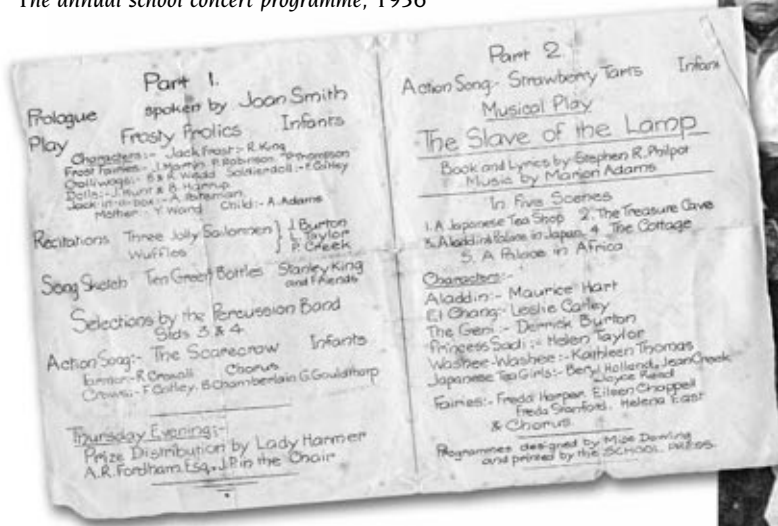 The annual school concert programme, 1936
Part 1.
Prologue spoken by Joan Smith
Play Frosty Frolics Infants
Characters:- Jack Frost:- R. King
Frost Fairies:- J. Martin P. Robinson P. Thompson
Golliwogs:- B & K. Wedd Soldier doll:- F. Gatley
Dolls:- J. Hunt & B. Harrup
Jack-in-a-box:- A. Bateman
Mother:- Y. Wand Child:- A. Adams
Recitations Three Jolly Sailormen } J. Burton
Wuffles L. Taylor
P. Creek
Song Sketch Ten Green Bottles Stanley King
and Friends
Selections by the Percussion Band
Stds 3 & 4
Action Song:- The Scarecrow Infants
Farmer:- R. Croxall Chorus
Crows:- F. Gatley. B. Chamberlain G. Gouldthorp
Thursday Evening:-
Prize Distribution by Lady Harmer
A.R. Fordham. Esq. J.P. in the Chair
Part 2.
Action Song:- Strawberry Tarts Infan
Musical Play
The Slave of the Lamp
Book and Lyrics by Stephen R. Philpot
Music by Marion Adams
In Five Scenes
1. A Japanese Tea Shop 2. The Treasure Cave
3. Aladdin's Palace in Japan. 4. The Cottage
5. A Palace in Africa
Characters:-
Aladdin:- Maurice Hart
El Chang:- Leslie Catley
The Geni:- Derrick Burton
Princess Sadi:- Helen Taylor
Washee-Washee:- Kathleen Thomas
Japanese Tea Girls:- Beryl Holland, Jean Creek
Joyce Read
Fairies:- Freda Harper, Eileen Chappell
Freda Stanford, Helena East
& Chorus.
Programmes designed by Miss Dowling
and printed by the SCHOOL PRESS.